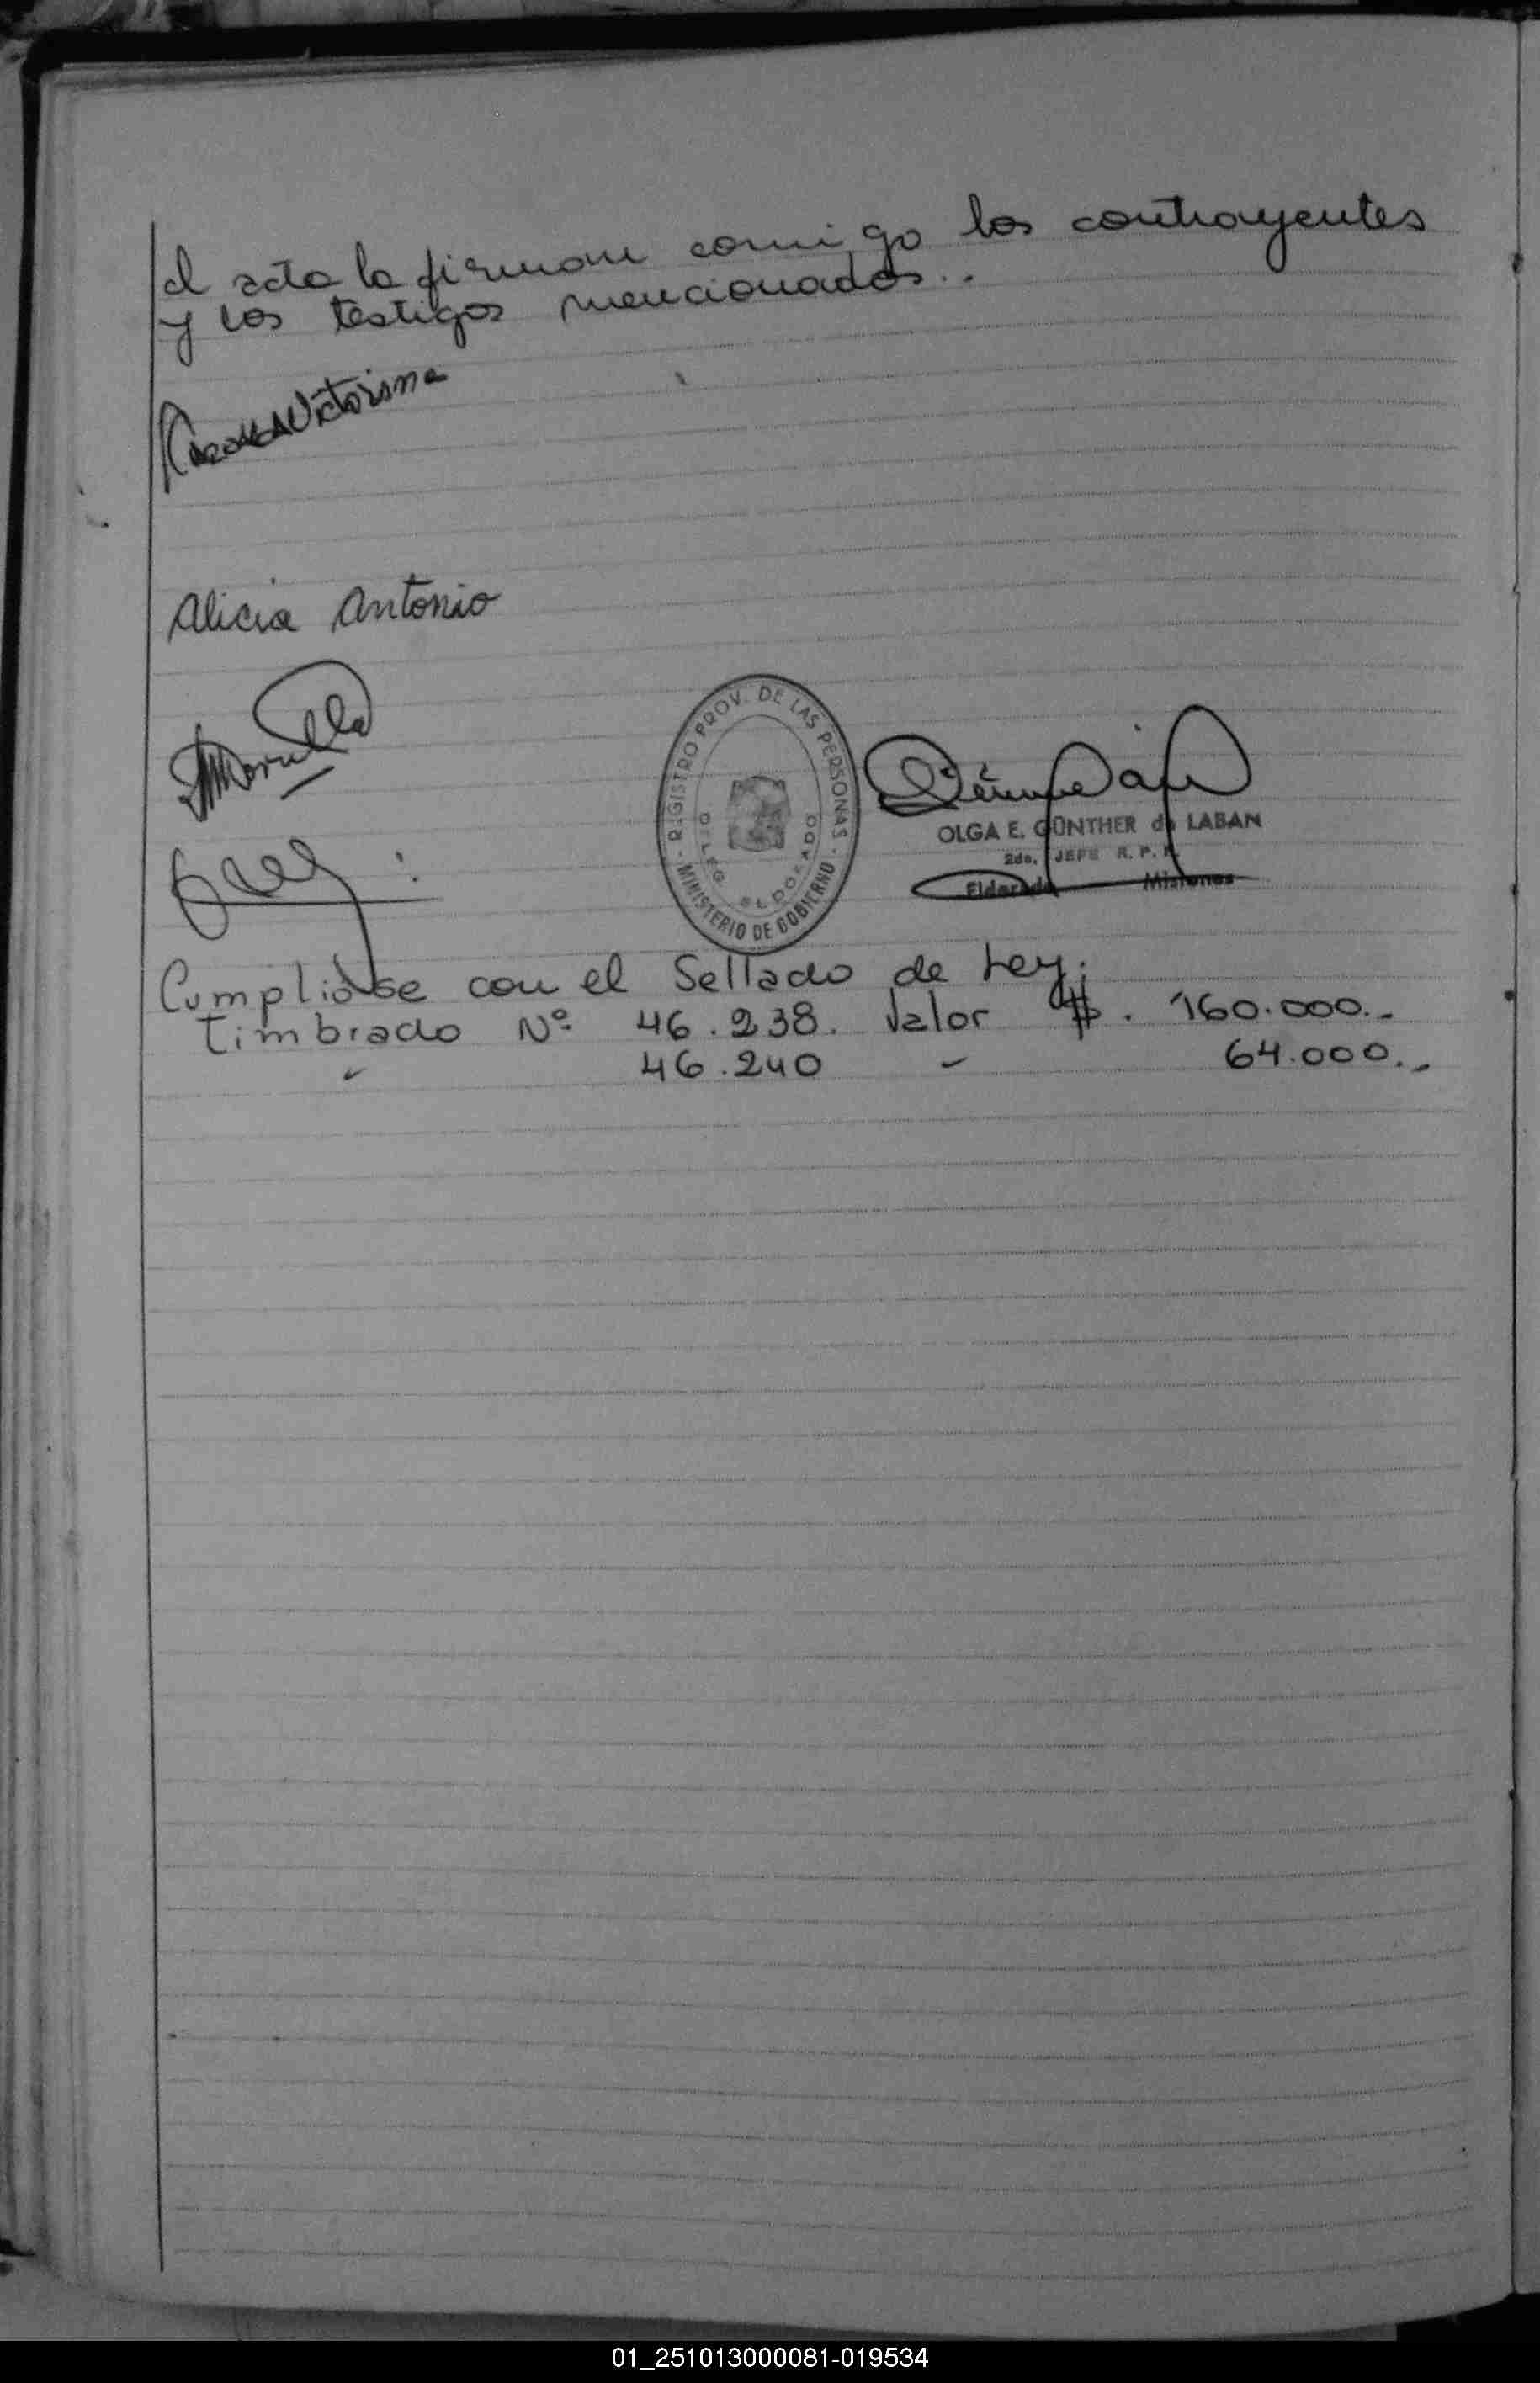 el acta la firman conmigo los contrayentes
y los testigos mencionados..
Victorina
Alicia Antonio
REGISTRO PROV. DE LAS PERSONAS
MINISTERIO DE GOBIERNO
DELEG. ELDORADO
OLGA E. GÜNTHER de LABAN
2do. JEFE R. P. P.
Eldorado Misiones
Cumplióse con el Sellado de Ley:
Timbrado Nº 46.238. Valor $. 160.000.-
46.240 - 64.000.-
01_251013000081-019534